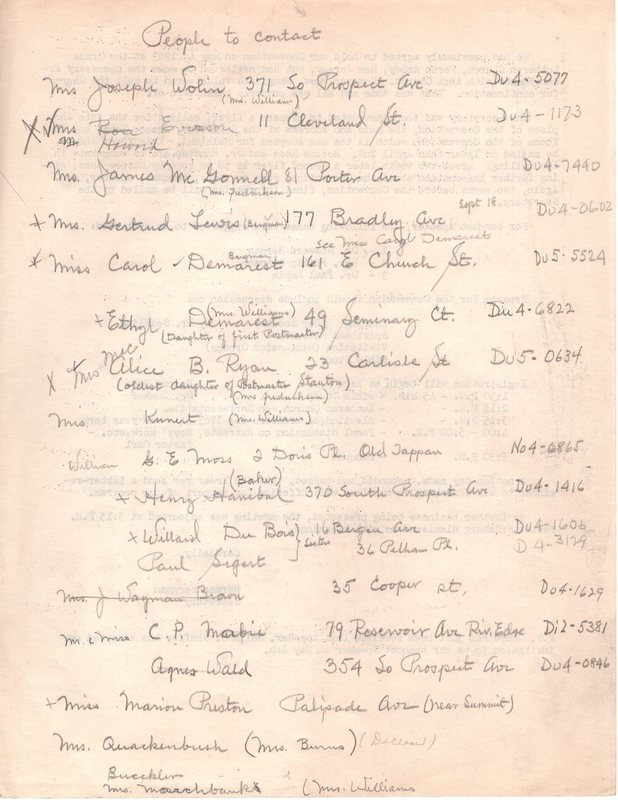 People to contact
Mrs Joseph Wolin 371 So Prospect Ave Du4-5077
(Mrs. Williams)
X ✓ Mrs Roa Evesson 11 Cleveland St. Du4-1173
Howard
Mrs. James Mc Gonnell 81 Porter Ave Du4-7440
(Mrs. Fredrikson)
Sept 18.
+ Mrs. Gertrud Lewis (Bergman) 177 Bradley Ave Du4-0602
See Miss Carol Demarest
Bergman
* Miss Carol Demarest 161 E Church St. Du5-5524
(Mrs. Williams)
+ Ethyl Demarest 49 Seminary Ct. Du4-6822
(Daughter of first Postmaster)
X + Mrs Alice B. Ryan 23 Carlisle St Du5-0634
(oldest daughter of Postmaster Stanton)
(Mrs fredrikson)
Mrs. Kunert (Mrs. Williams)
William G. E Moss 2 Doris Pl. Old Tappan No4-0865
(Baker)
+ Henry Hanibal 370 South Prospect Ave Du4-1416
+ Willard Du Bois } 16 Bergen Ave Du4-1606
Sisters 36 Pelham Pl. D 4-3129
Paul Segert
Mrs. J Wayman Brown 35 Cooper st, Du4-1629
Mr. & Miss C. P. Mabie 79 Reservoir Ave Riv. Edge Di2-5381
Agnes Wald 354 So Prospect Ave Du4-0846
+ Miss Marion Preston Palisade Ave (near Summit)
Mrs. Quackenbush (Mrs. Burns)
Bueckler
Mrs. Maschbanks (Mrs. Williams